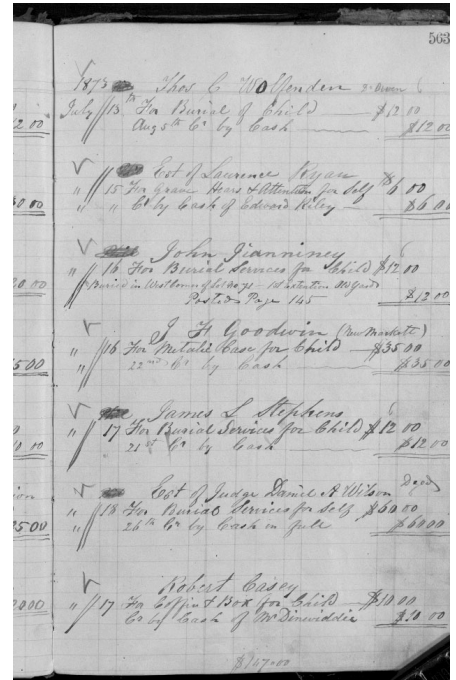 563
1873 Thos C Wolfenden
July 13th For Burial of Child $12 00
Aug 5th Cr by Cash $12 00
Est of Laurence Ryan
" 15 For Grave Hears & Attention for Self $6 00
" " Cr by Cash of Edward Riley $6 00
John Jianniney
" 16 For Burial Services for Child $12 00
Buried in West corner of lot No 71 - 1st section
Posted Page 145 $12 00
J F Goodwin (New Markett)
" 16 For Metalic Case for Child $35 00
" 22nd Cr by Cash $35 00
James L Stephens
" 17 For Burial Services for Child $12 00
21st Cr by Cash $12 00
Est of Judge Daniel A Wilson Decd
" 18 For Burial Services for Self $60 00
26th Cr by Cash in full $60 00
Robert Casey
" 17 For Coffin & Box for Child $10 00
Cr by Cash of Mr Dinwiddie $10 00
$147.00